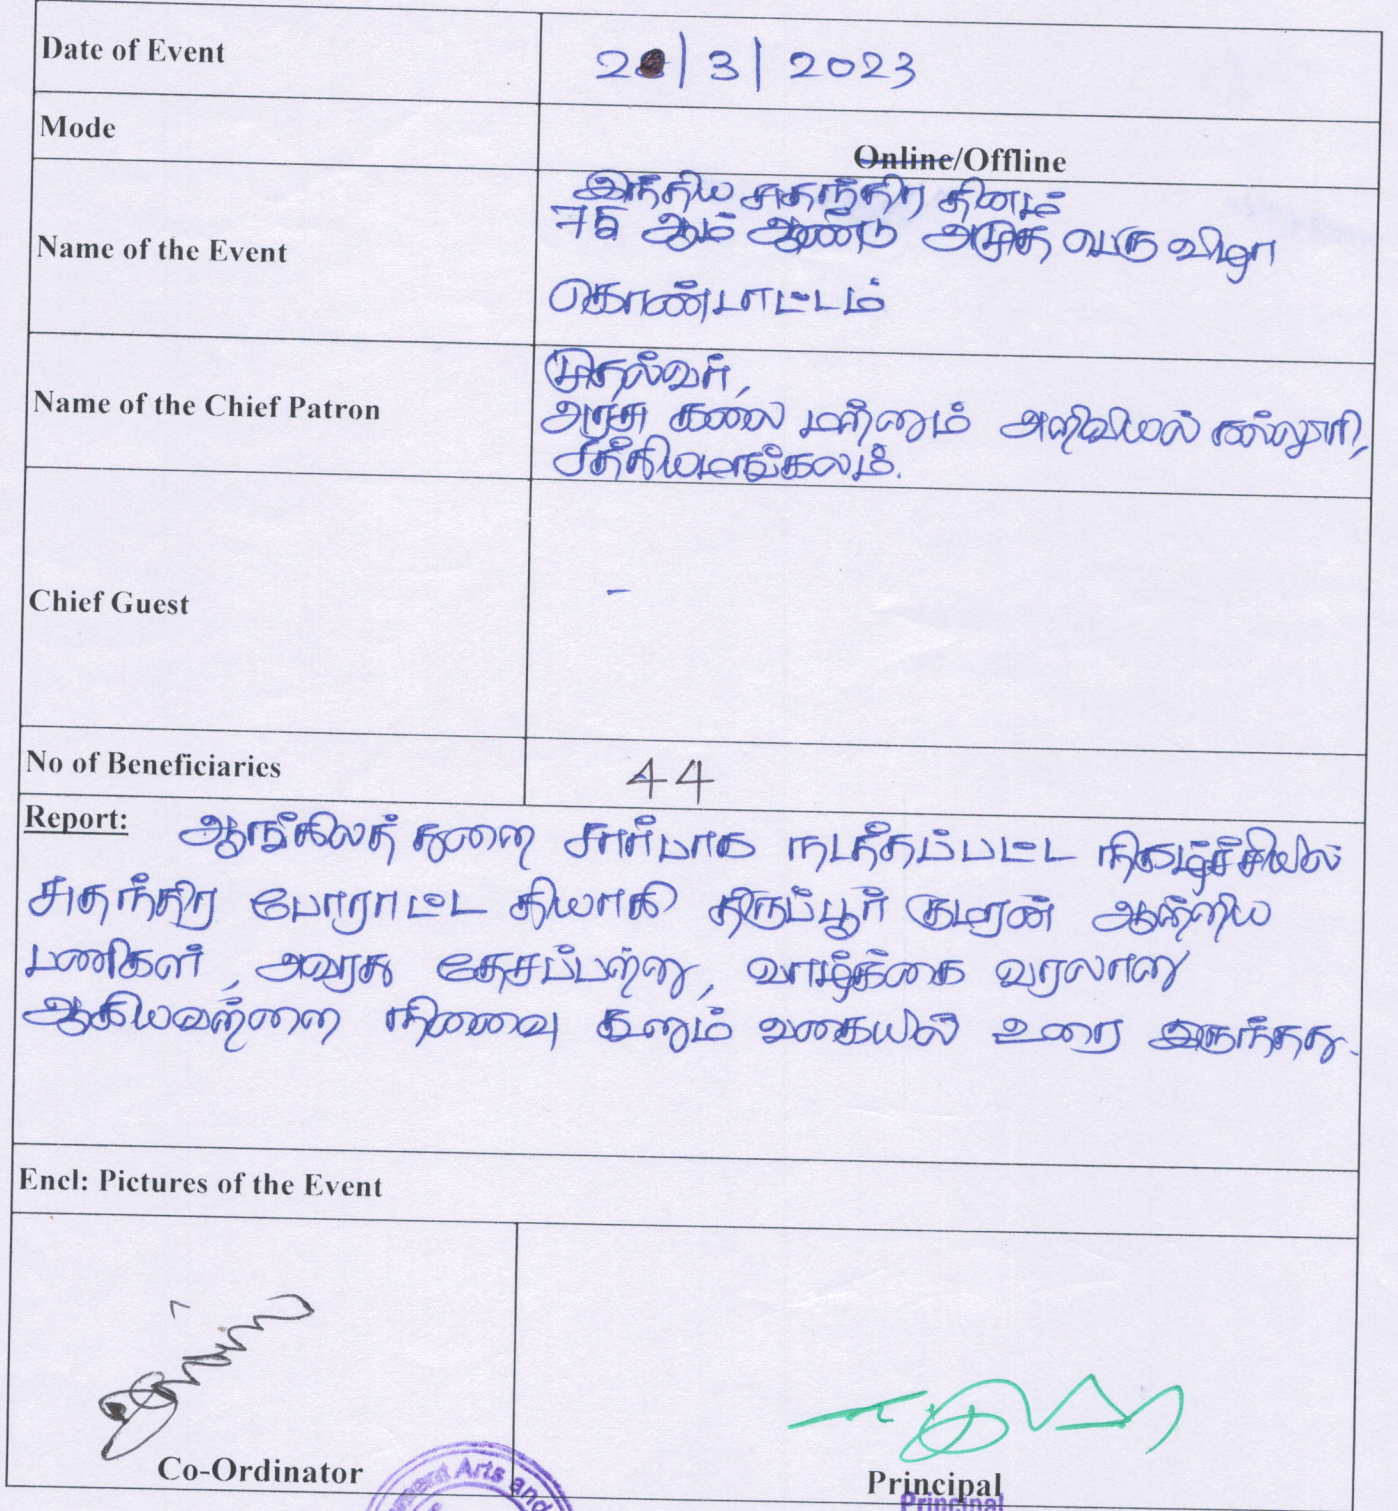 Date of Event
2 | 3 | 2023
Mode
Online/Offline
Name of the Event
இந்திய சுதந்திர தினம்
75 ஆம் ஆண்டு அமுத பெரு விழா
கொண்டாட்டம்
Name of the Chief Patron
முதல்வர்,
அரசு கலை மற்றும் அறிவியல் கல்லூரி,
சத்தியமங்கலம்.
Chief Guest
-
No of Beneficiaries
44
Report: ஆங்கிலத் துறை சார்பாக நடத்தப்பட்ட நிகழ்ச்சியில்
சுதந்திர போராட்ட தியாகி திருப்பூர் குமரன் ஆற்றிய
பணிகள், அவரது தேசப்பற்று, வாழ்க்கை வரலாறு
ஆகியவற்றை நினைவு கூறும் வகையில் உரை இருந்தது.
Encl: Pictures of the Event
Co-Ordinator
Arts and
Principal
Principal